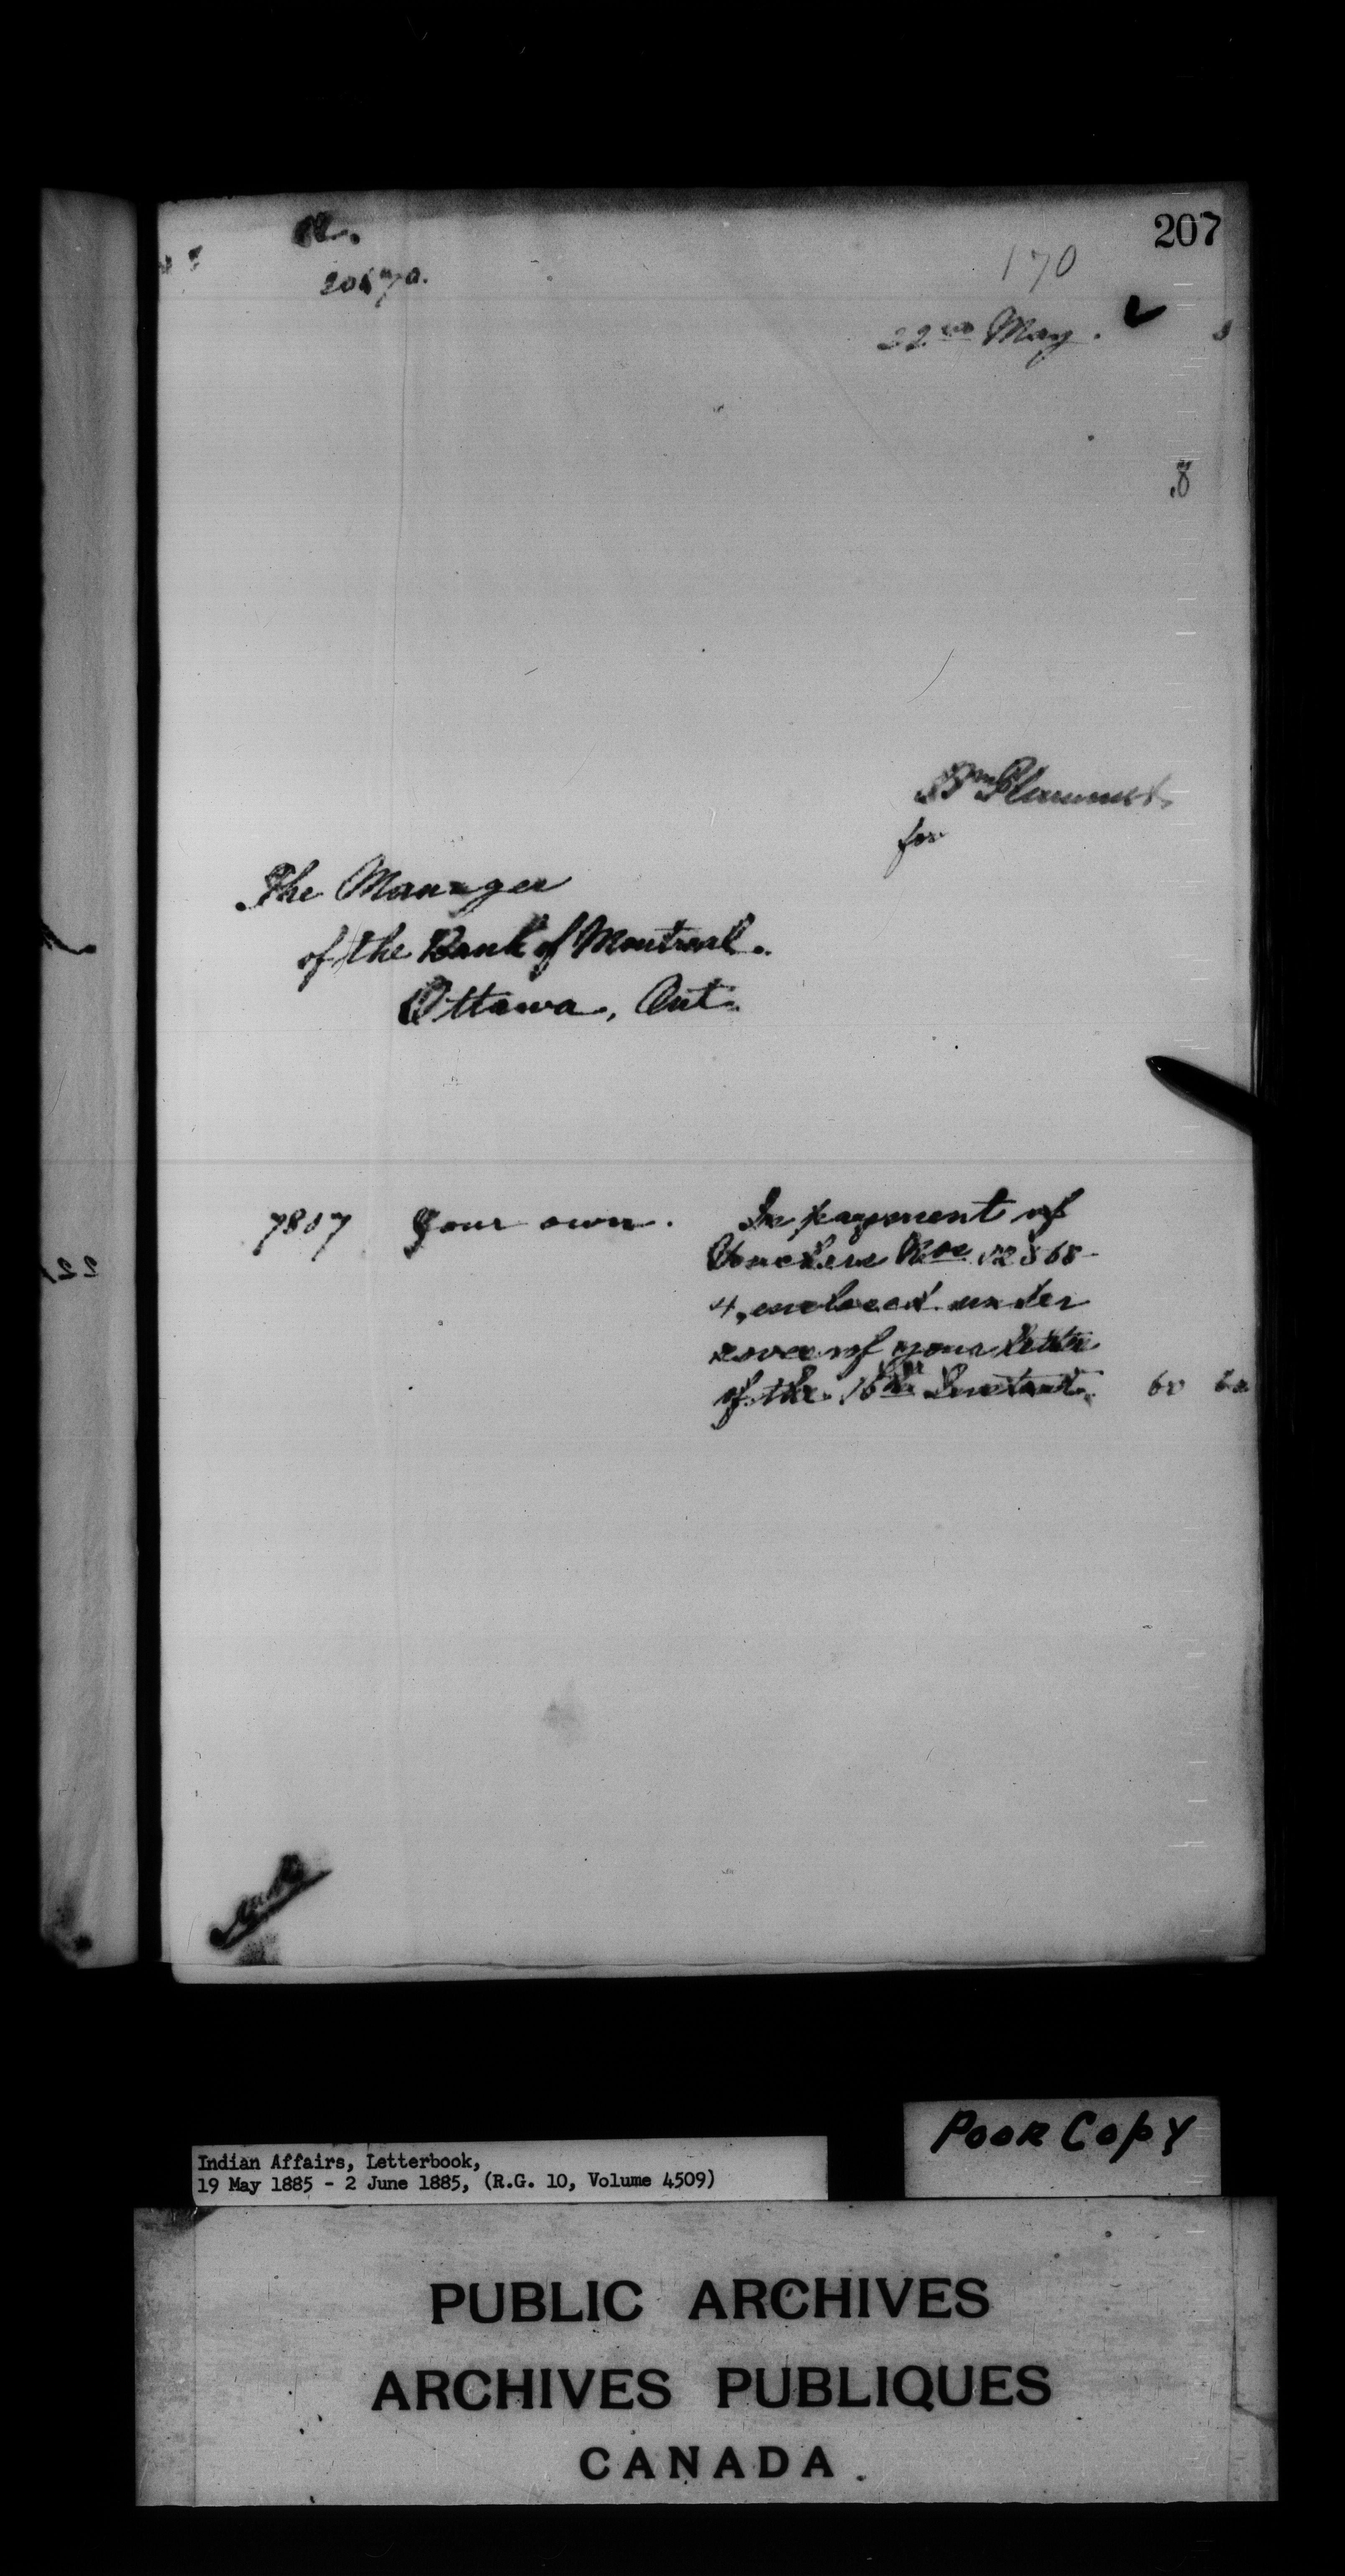 207
170
22nd May.
8
Wm Plummer
for
The Manager
of the Bank of Montreal.
Ottawa, Ont.
7807 Your own. In payment of
Vouchers Nos
4, enclosed under
cover of your letter
of the 16th Instant. 60
Poor Copy
Indian Affairs, Letterbook,
19 May 1885 - 2 June 1885, (R.G. 10, Volume 4509)
PUBLIC ARCHIVES
ARCHIVES PUBLIQUES
CANADA